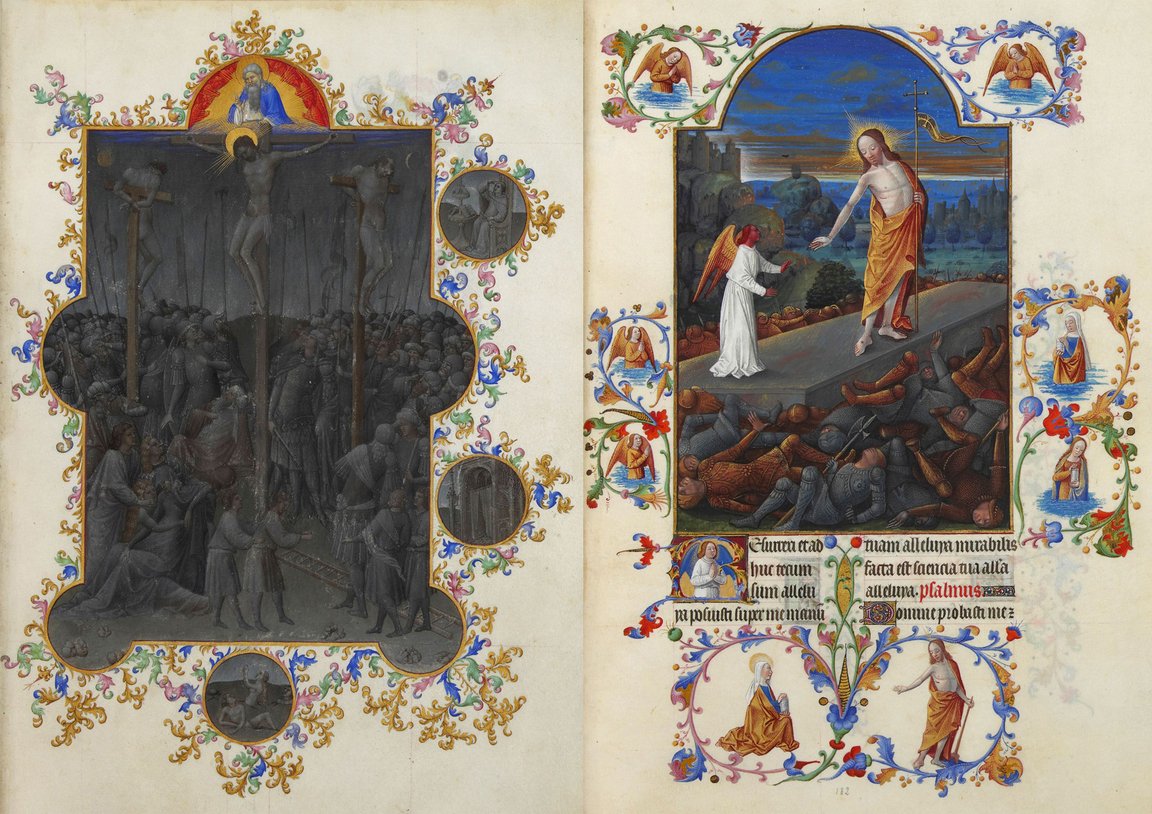 REsurrexi et ad
huc tecum
sum allelu
ya posuisti super me manū
tuam alleluya mirabilis
facta est sciencia tua alla
alleluya. psalmus
Domine probasti me z
182